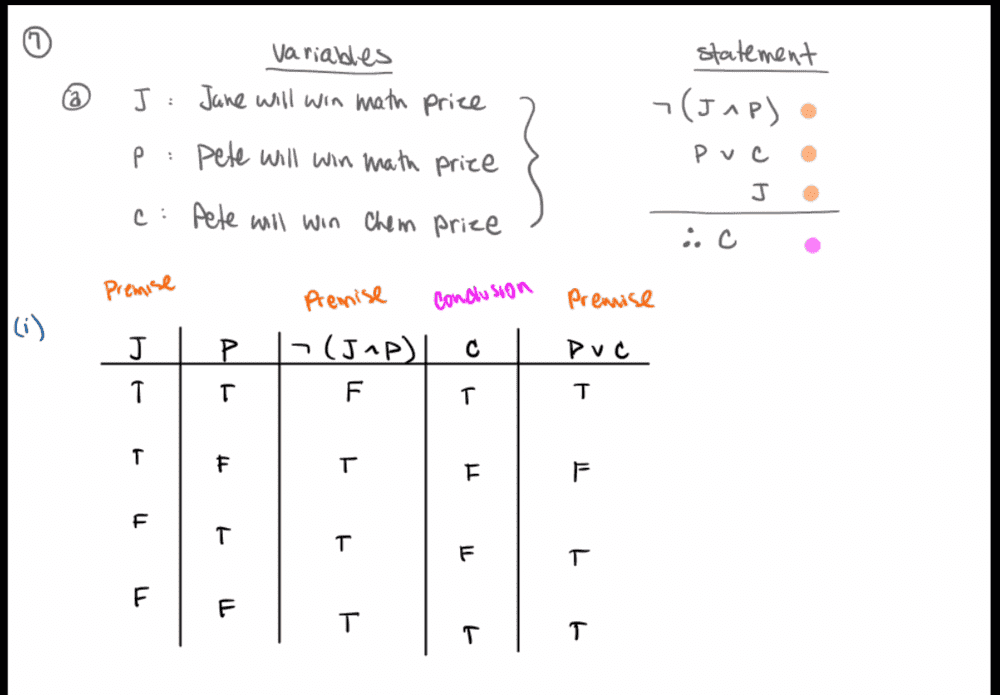 7
variables
statement
a J : Jane will win math price
¬(J ∧ P)
P : Pete will win math prize
P ∨ C
J
C : Pete will win Chem prize
∴ C
Premise
Premise
Conclusion
Premise
(i)
J P ¬(J∧P) C P∨C
T T F T T
T F T F F
F T T F T
F F T T T